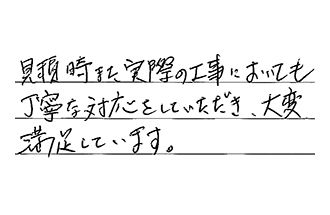 見積時また実際の工事においても
丁寧な対応をしていただき、大変
満足しています。